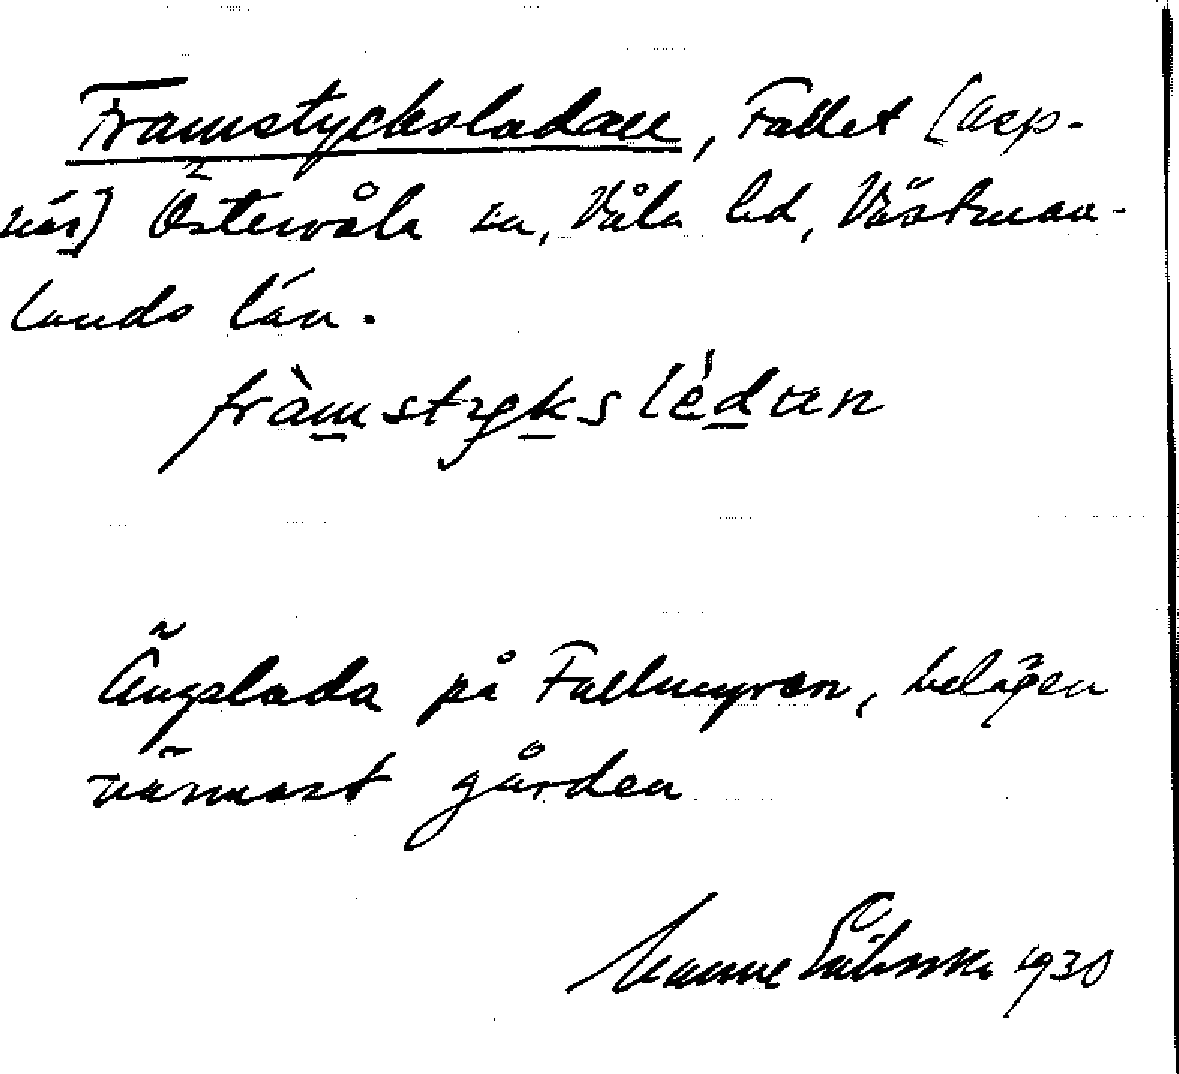 Framstycksladan, Fallet (Asp-
näs) Östervåla sn, Våla hd, Västman-
lands län.
fràmstyks lédan
Ängslada på Fallmyran, belägen
närmast gården
Manne Eriksson 1930